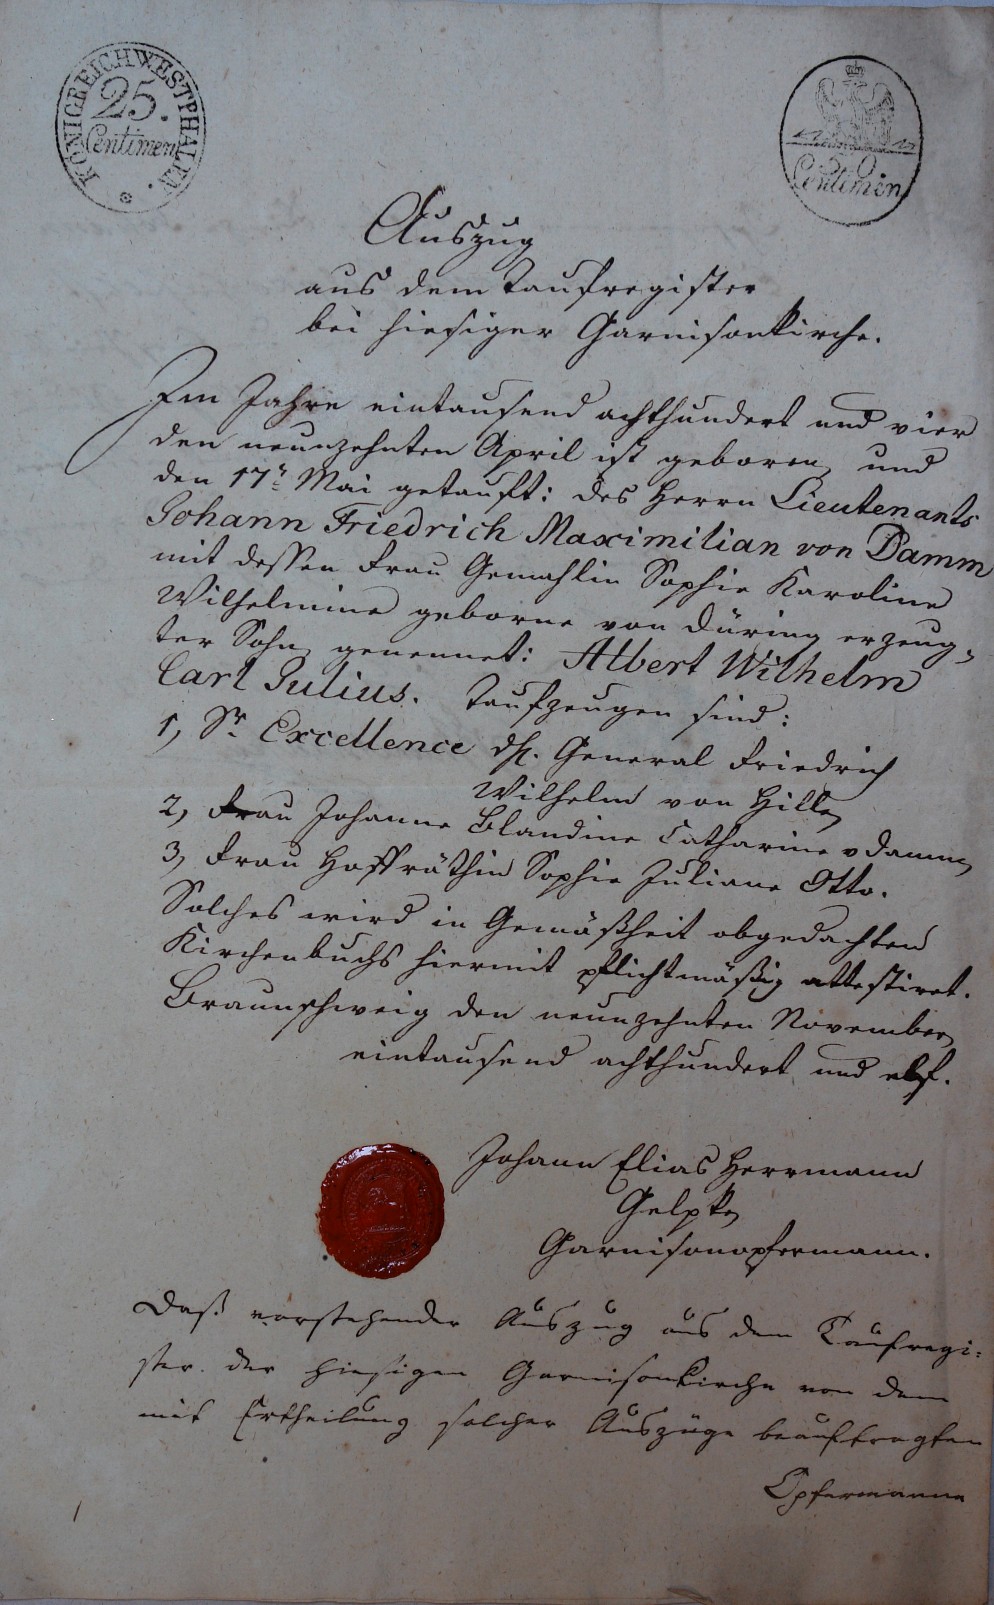 KÖNIGREICH WESTPHALEN.
25.
Centimen
50
Centimen
Auszug
aus dem Taufregister
bei hiesiger Garnisonkirche.
Im Jahre eintausend achthundert und vier
den neunzehnten April ist geboren, und
den 17n Mai getauft: des Herrn Lieutenants
Johann Friedrich Maximilian von Damm
mit dessen Frau Gemahlin Sophie Karoline
Wilhelmine geborne von Düring erzeug-
ter Sohn, genennet: Albert Wilhelm
Carl Julius. Taufzeugen sind:
1, Sr. Excellence dh. General Friedrich
Wilhelm von Hille,
2, Frau Johanne Blandine Catharine v Damm,
3, Frau Hoffräthin Sophie Juliane Otto.
Solches wird in Gemäßheit obgedachten
Kirchenbuchs hiermit pflichtmäßig attestiret.
Braunschweig den neunzehnten November,
eintausend achthundert und elf.
Johann Elias Herrmann
Gelpke,
Garnisonopfermann.
Daß vorstehender Auszug aus dem Taufregi-
ster der hiesigen Garnisonkirche von dem
mit Ertheilung solcher Auszüge beauftragten
Opfermanne